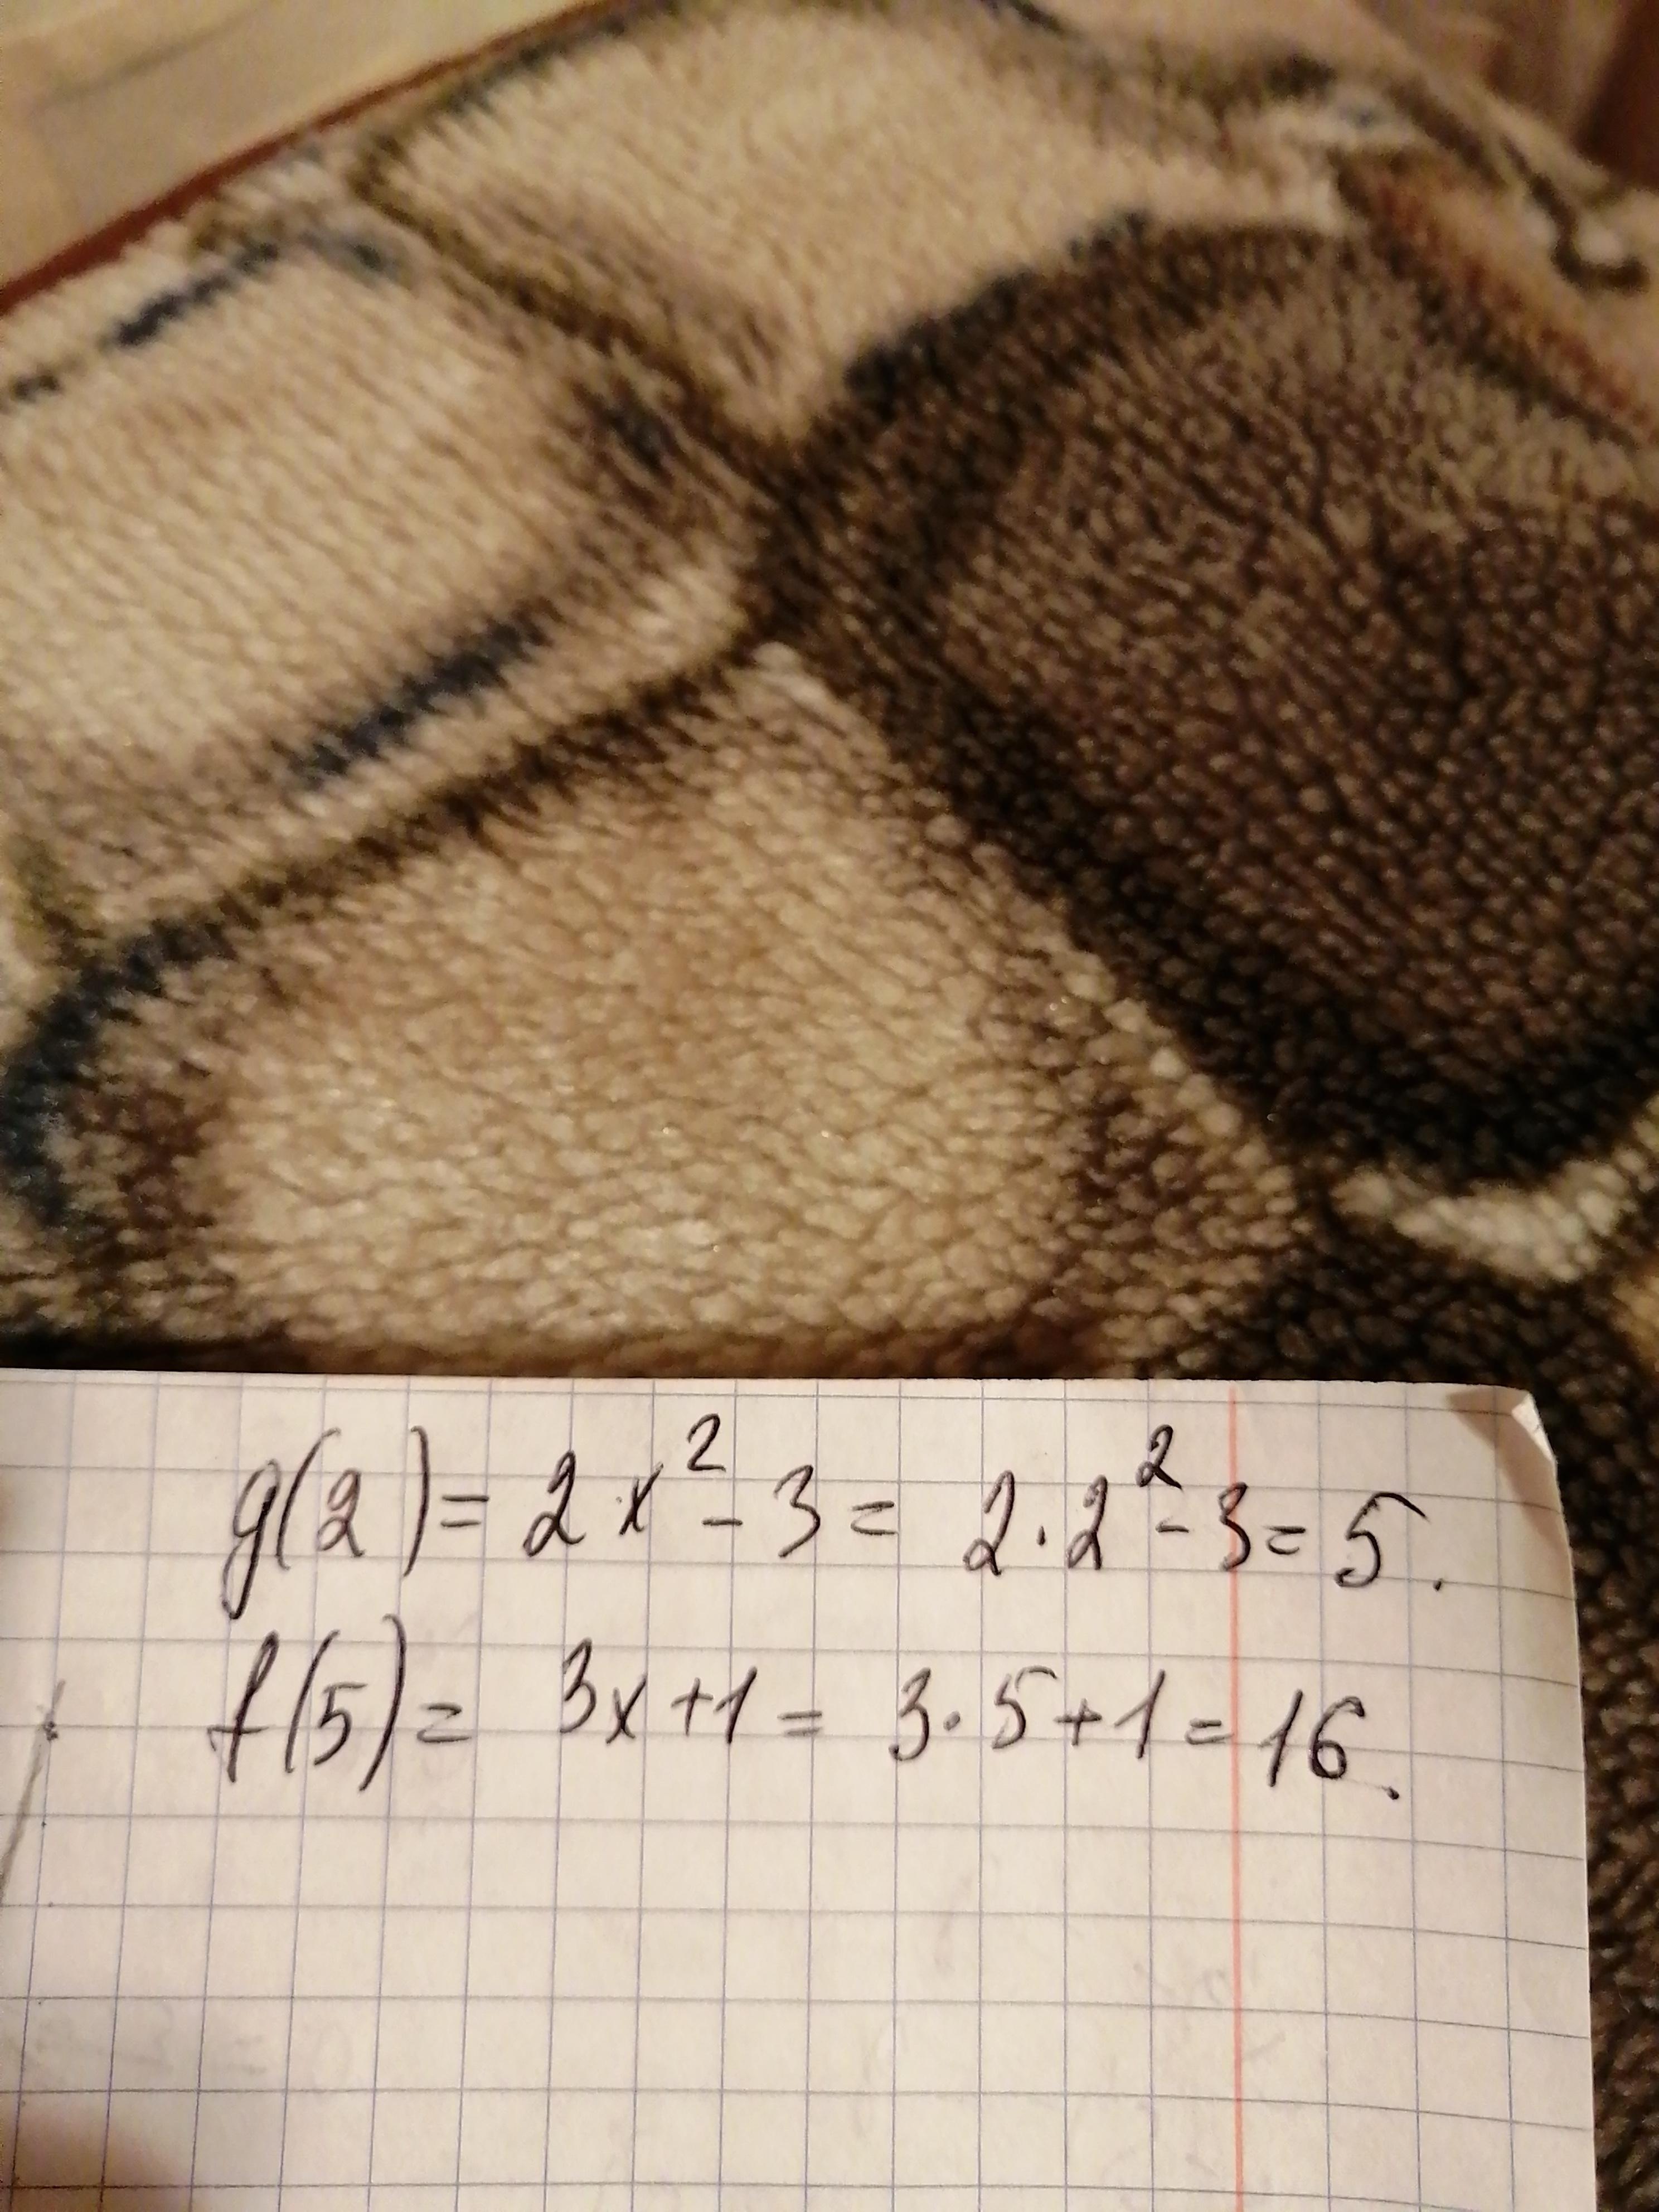 g(2) = 2x² - 3 = 2·2² - 3 = 5.
f(5) = 3x + 1 = 3·5 + 1 = 16.